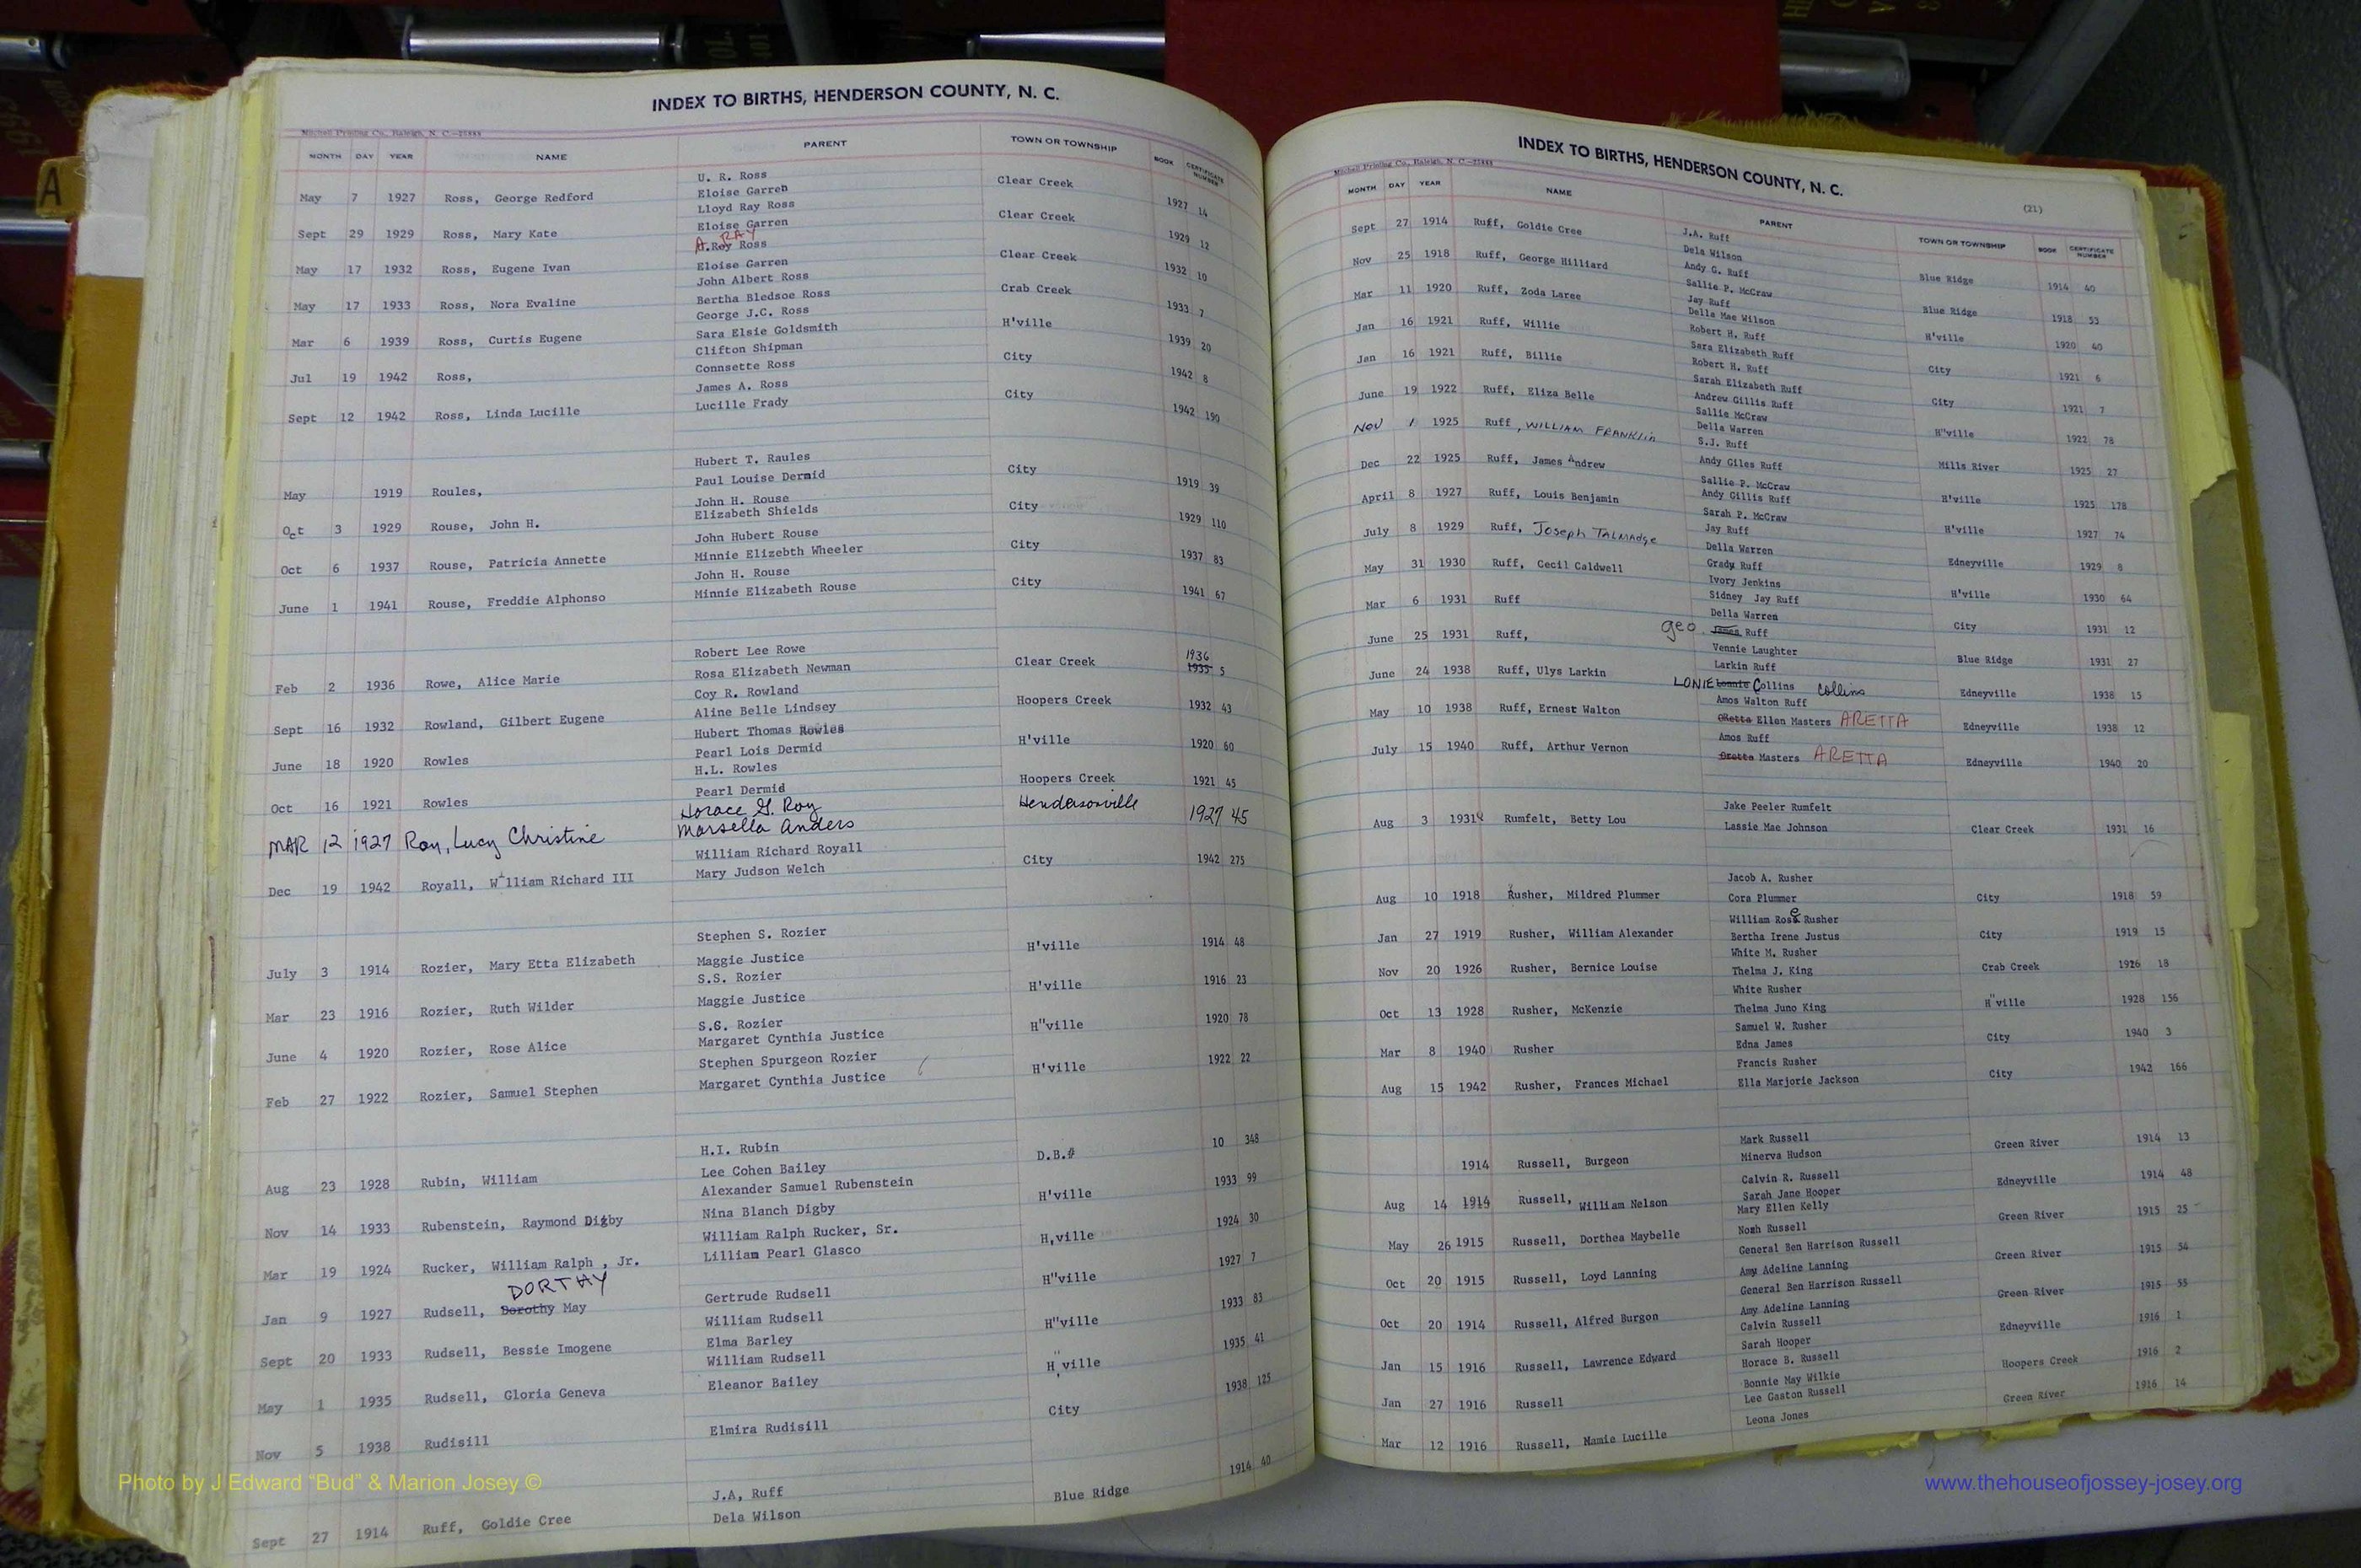 INDEX TO BIRTHS, HENDERSON COUNTY, N. C.
Mitchell Printing Co., Raleigh, N. C.—25888
MONTH DAY YEAR NAME PARENT TOWN OR TOWNSHIP BOOK CERTIFICATE NUMBER
U. R. Ross
May 7 1927 Ross, George Redford Eloise Garren Clear Creek 1927 14
Lloyd Ray Ross
Sept 29 1929 Ross, Mary Kate Eloise Garren Clear Creek 1929 12
RAY
A. Roy Ross
May 17 1932 Ross, Eugene Ivan Eloise Garren Clear Creek 1932 10
John Albert Ross
May 17 1933 Ross, Nora Evaline Bertha Bledsoe Ross Crab Creek 1933 7
George J.C. Ross
Mar 6 1939 Ross, Curtis Eugene Sara Elsie Goldsmith H'ville 1939 20
Clifton Shipman
Jul 19 1942 Ross, Connsette Ross City 1942 8
James A. Ross
Sept 12 1942 Ross, Linda Lucille Lucille Frady City 1942 190
Hubert T. Raules
May 1919 Roules, Paul Louise Dermid City 1919 39
John H. Rouse
Oct 3 1929 Rouse, John H. Elizabeth Shields City 1929 110
John Hubert Rouse
Oct 6 1937 Rouse, Patricia Annette Minnie Elizebth Wheeler City 1937 83
John H. Rouse
June 1 1941 Rouse, Freddie Alphonso Minnie Elizabeth Rouse City 1941 67
Robert Lee Rowe 1936
Feb 2 1936 Rowe, Alice Marie Rosa Elizabeth Newman Clear Creek 1935 5
Coy R. Rowland
Sept 16 1932 Rowland, Gilbert Eugene Aline Belle Lindsey Hoopers Creek 1932 43
Hubert Thomas Rowles
June 18 1920 Rowles Pearl Lois Dermid H'ville 1920 60
H.L. Rowles
Oct 16 1921 Rowles Pearl Dermid Hoopers Creek 1921 45
Horace G. Roy
MAR 12 1927 Roy, Lucy Christine Marsella Anders Hendersonville 1927 45
William Richard Royall
Dec 19 1942 Royall, William Richard III Mary Judson Welch City 1942 275
Stephen S. Rozier
July 3 1914 Rozier, Mary Etta Elizabeth Maggie Justice H'ville 1914 48
S.S. Rozier
Mar 23 1916 Rozier, Ruth Wilder Maggie Justice H'ville 1916 23
S.S. Rozier
June 4 1920 Rozier, Rose Alice Margaret Cynthia Justice H"ville 1920 78
Stephen Spurgeon Rozier
Feb 27 1922 Rozier, Samuel Stephen Margaret Cynthia Justice H'ville 1922 22
H.I. Rubin
Aug 23 1928 Rubin, William Lee Cohen Bailey D.B.# 10 348
Alexander Samuel Rubenstein
Nov 14 1933 Rubenstein, Raymond Digby Nina Blanch Digby H'ville 1933 99
William Ralph Rucker, Sr.
Mar 19 1924 Rucker, William Ralph , Jr. Lilliam Pearl Glasco H,ville 1924 30
DORTHY
Jan 9 1927 Rudsell, Dorothy May Gertrude Rudsell H"ville 1927 7
William Rudsell
Sept 20 1933 Rudsell, Bessie Imogene Elma Barley H"ville 1933 83
William Rudsell
May 1 1935 Rudsell, Gloria Geneva Eleanor Bailey H"ville 1935 41
Nov 5 1938 Rudisill Elmira Rudisill City 1938 125
J.A, Ruff
Sept 27 1914 Ruff, Goldie Cree Dela Wilson Blue Ridge 1914 40
INDEX TO BIRTHS, HENDERSON COUNTY, N. C.
Mitchell Printing Co., Raleigh, N. C.—25888
(21)
MONTH DAY YEAR NAME PARENT TOWN OR TOWNSHIP BOOK CERTIFICATE NUMBER
J.A. Ruff
Sept 27 1914 Ruff, Goldie Cree Dela Wilson Blue Ridge 1914 40
Andy G. Ruff
Nov 25 1918 Ruff, George Hilliard Sallie P. McCraw Blue Ridge 1918 53
Jay Ruff
Mar 11 1920 Ruff, Zoda Laree Della Mae Wilson H'ville 1920 40
Robert H. Ruff
Jan 16 1921 Ruff, Willie Sara Elizabeth Ruff City 1921 6
Robert H. Ruff
Jan 16 1921 Ruff, Billie Sarah Elizabeth Ruff City 1921 7
Andrew Gillis Ruff
June 19 1922 Ruff, Eliza Belle Sallie McCraw H"ville 1922 78
Della Warren
NOV 1 1925 Ruff, WILLIAM FRANKLIN S.J. Ruff Mills River 1925 27
Andy Giles Ruff
Dec 22 1925 Ruff, James Andrew Sallie P. McCraw H'ville 1925 178
Andy Gillis Ruff
April 8 1927 Ruff, Louis Benjamin Sarah P. McCraw H'ville 1927 74
Jay Ruff
July 8 1929 Ruff, Joseph TALMAdge Della Warren Edneyville 1929 8
Grady Ruff
May 31 1930 Ruff, Cecil Caldwell Ivory Jenkins H'ville 1930 64
Sidney Jay Ruff
Mar 6 1931 Ruff Della Warren City 1931 12
geo. James Ruff
June 25 1931 Ruff, Vennie Laughter Blue Ridge 1931 27
Larkin Ruff
June 24 1938 Ruff, Ulys Larkin LONIE Lonnie Collins Collins Edneyville 1938 15
Amos Walton Ruff
May 10 1938 Ruff, Ernest Walton Oretta Ellen Masters ARETTA Edneyville 1938 12
Amos Ruff
July 15 1940 Ruff, Arthur Vernon Oretta Masters ARETTA Edneyville 1940 20
Jake Peeler Rumfelt
Aug 3 1931 Rumfelt, Betty Lou Lassie Mae Johnson Clear Creek 1931 16
Jacob A. Rusher
Aug 10 1918 Rusher, Mildred Plummer Cora Plummer City 1918 59
William Rose Rusher
Jan 27 1919 Rusher, William Alexander Bertha Irene Justus City 1919 15
White M. Rusher
Nov 20 1926 Rusher, Bernice Louise Thelma J. King Crab Creek 1926 18
White Rusher
Oct 13 1928 Rusher, McKenzie Thelma Juno King H"ville 1928 156
Samuel W. Rusher
Mar 8 1940 Rusher Edna James City 1940 3
Francis Rusher
Aug 15 1942 Rusher, Frances Michael Ella Marjorie Jackson City 1942 166
Mark Russell
1914 Russell, Burgeon Minerva Hudson Green River 1914 13
Calvin R. Russell
Aug 14 1914 Russell, William Nelson Sarah Jane Hooper Edneyville 1914 48
Mary Ellen Kelly
May 26 1915 Russell, Dorthea Maybelle Noah Russell Green River 1915 25
General Ben Harrison Russell
Oct 20 1915 Russell, Loyd Lanning Amy Adeline Lanning Green River 1915 54
General Ben Harrison Russell
Oct 20 1914 Russell, Alfred Burgon Amy Adeline Lanning Green River 1915 55
Calvin Russell
Jan 15 1916 Russell, Lawrence Edward Sarah Hooper Edneyville 1916 1
Horace B. Russell
Jan 27 1916 Russell Bonnie May Wilkie Hoopers Creek 1916 2
Lee Gaston Russell
Mar 12 1916 Russell, Mamie Lucille Leona Jones Green River 1916 14
A
Photo by J Edward “Bud” & Marion Josey ©
www.thehouseofjossey-josey.org